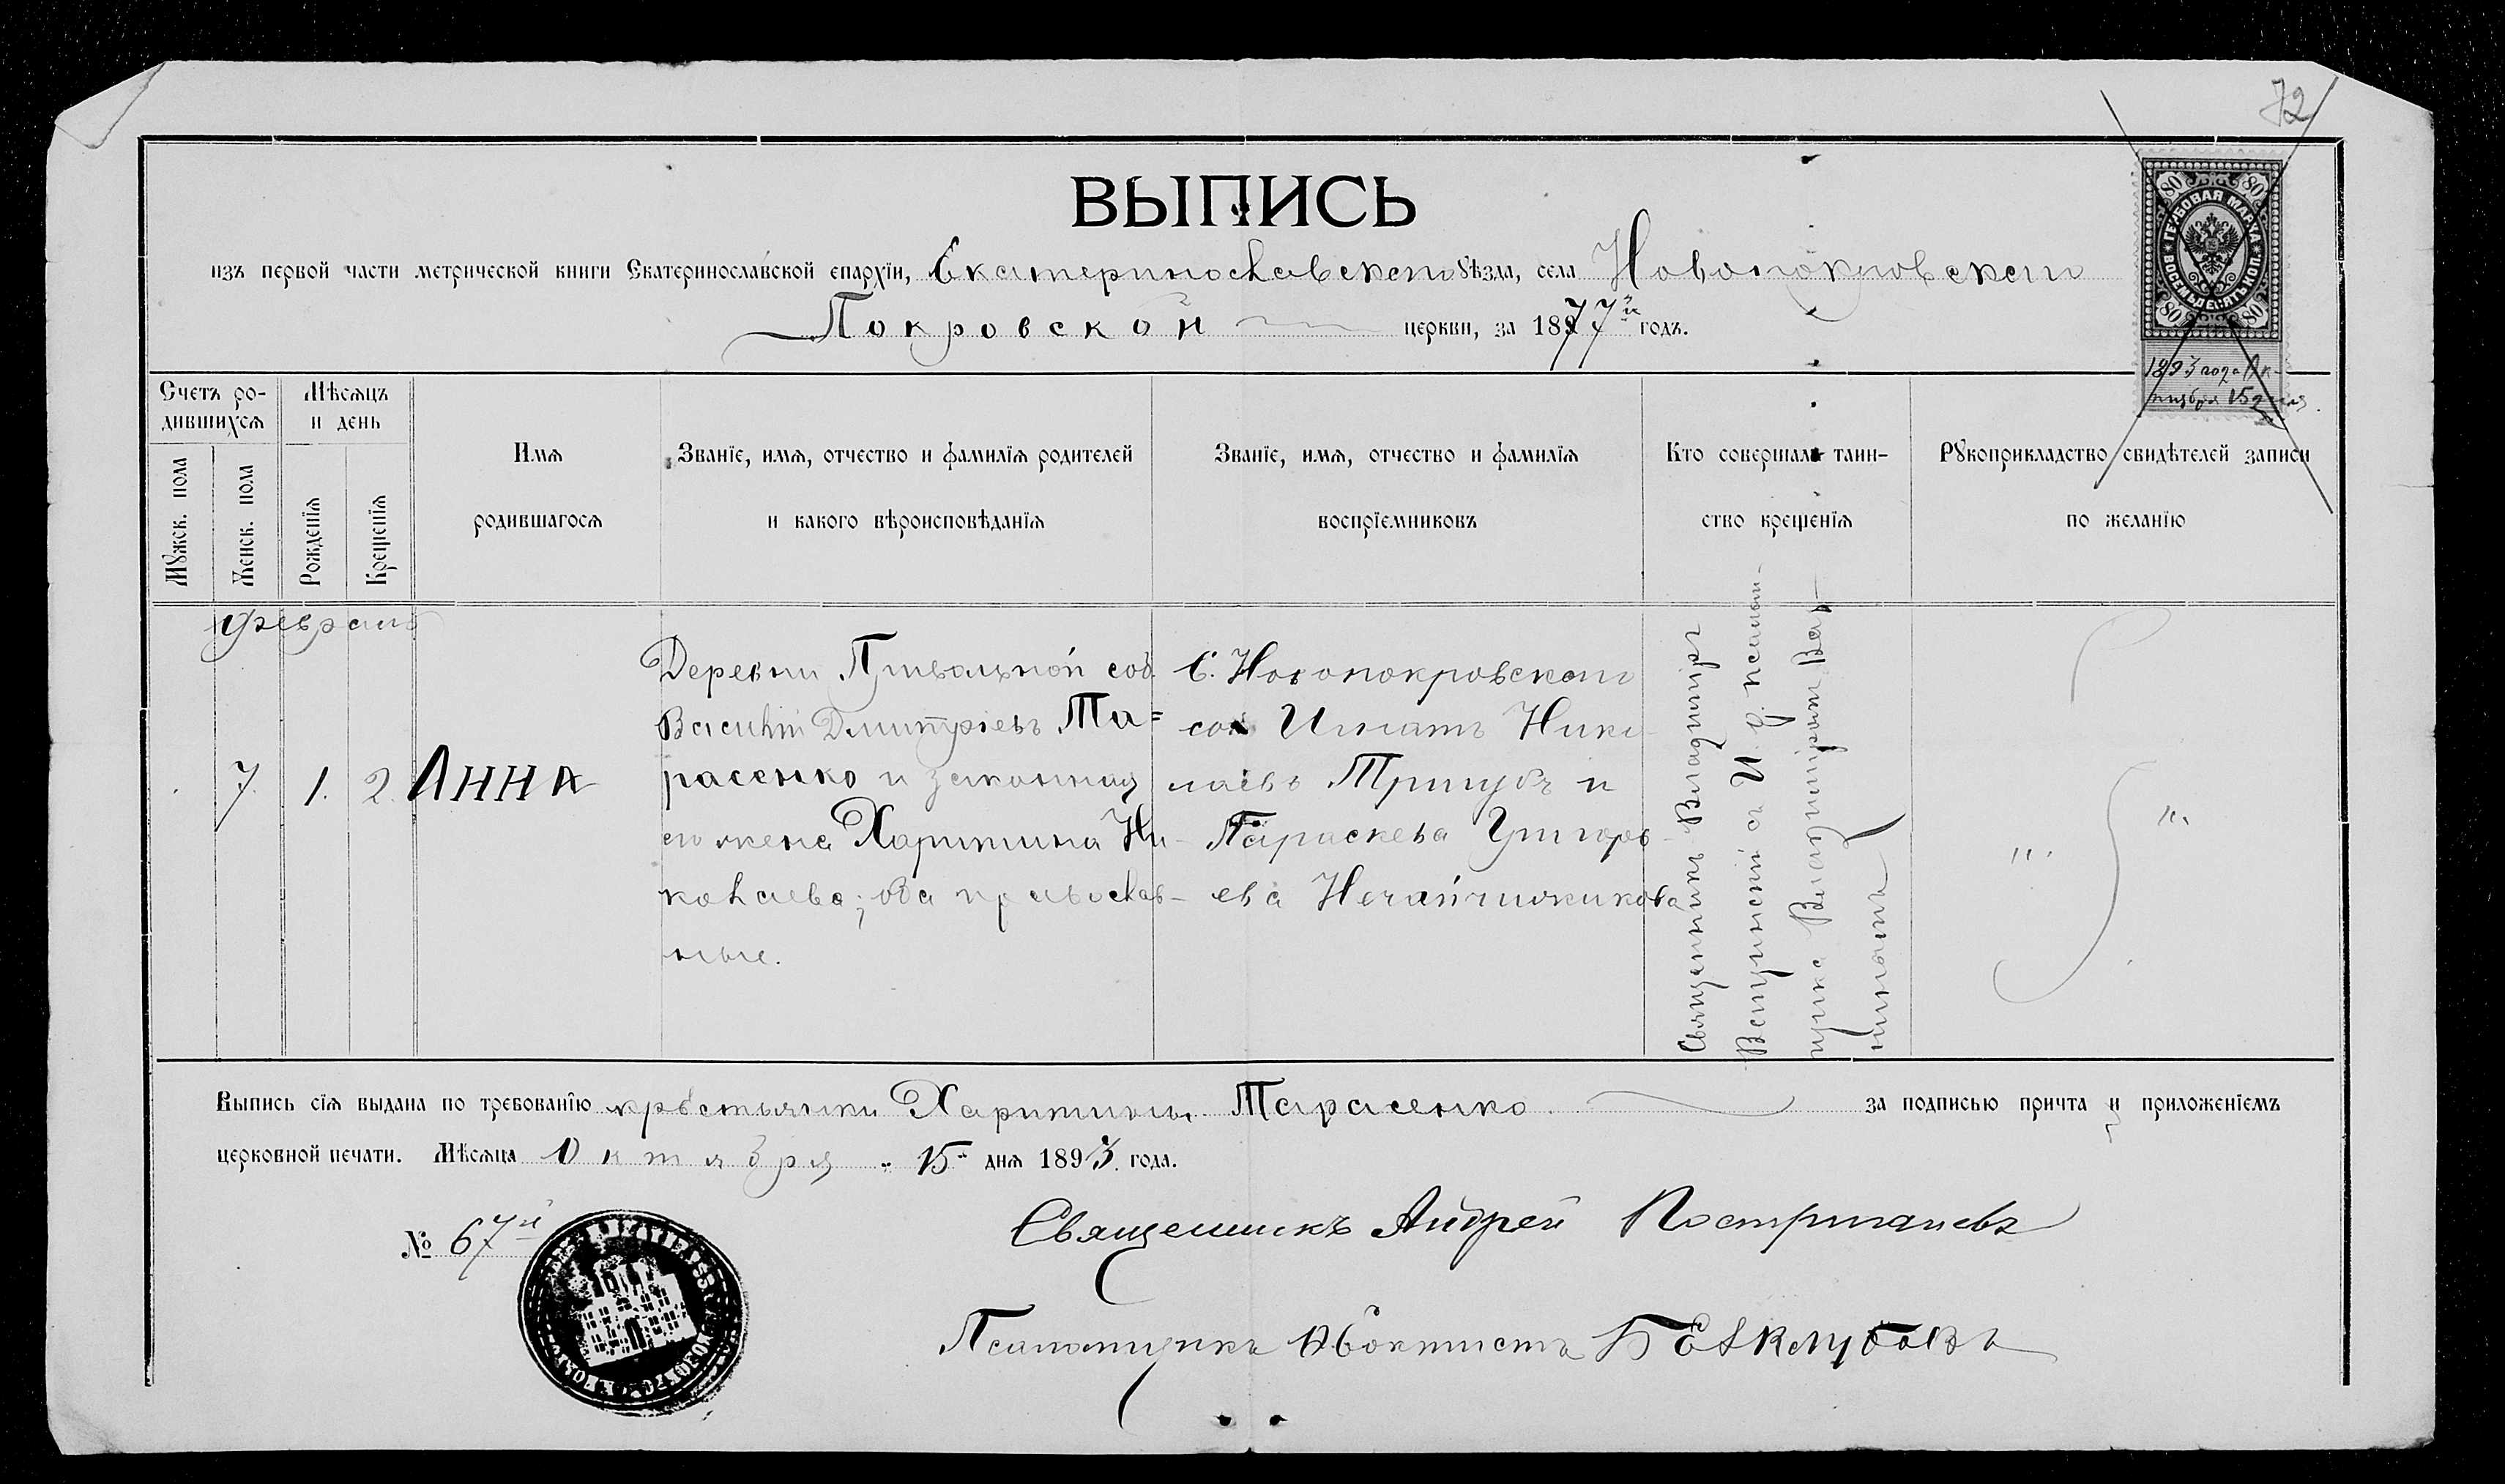 72
ВЫПИСЬ
изъ первой части метрической книги Екатеринославской епархїи, Екатеринославскаго Уѣзда, села Новопокровскаго
Покровской церкви, за 1877й годъ.
80 80
ГЕРБОВАЯ МАРКА
ВОСЕМЬДЕСЯТЬ КОП.
80 80
1893 года Ок-
тября 15 дня.
Счетъ ро-
дившихся
Мѣсяцъ
и день
Мужск. пола
Женск. пола
Рожденїя
Крещенїя
Имя
родившагося
Званїе, имя, отчество и фамилїя родителей
и какого вѣроисповѣданїя
Званїе, имя, отчество и фамилїя
воспрїемниковъ
Кто совершалъ таин-
ство крещенїя
Рукоприкладство свидѣтелей записи
по желанїю
Февраль
7. 1. 2. АННА
Деревни соб.
Василій Димитріевъ Та=
расенко и законная
его жена Харитина Ни-
колаева; оба православ-
ные.
С. Новопокровскаго
соб. Игнатъ Нико-
лаевъ Тригубъ и
Параскева Григорь-
ева
Священникъ Владиміръ
съ И. д. псалом-
щика Владиміромъ
" "
Выпись сїя выдана по требованїю крестьянки Харитины Тарасенко за подписью причта и приложенїемъ
церковной печати. Мѣсяца Октября " 15" дня 1893. года.
№ 67й
Священникъ Андрей Постригачевъ
Псаломщикъ